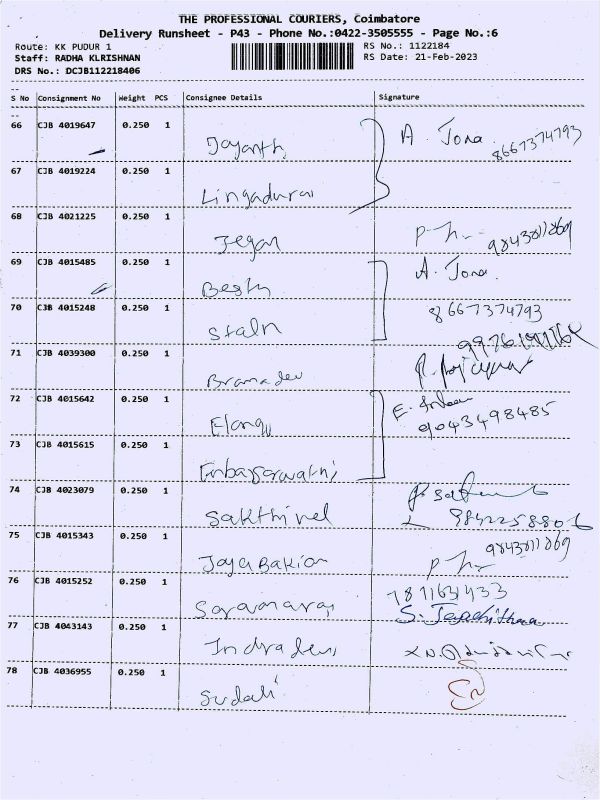 THE PROFESSIONAL COURIERS, Coimbatore
Delivery Runsheet - P43 - Phone No.:0422-3505555 - Page No.:6
Route: KK PUDUR 1 RS No.: 1122184
Staff: RADHA KLRISHNAN RS Date: 21-Feb-2023
DRS No.: DCJB112218406
S No Consignment No Weight PCS Consignee Details Signature
66 CJB 4019647 0.250 1 Jayanth A. Jona 8667374793
67 CJB 4019224 0.250 1 Lingadurai
68 CJB 4021225 0.250 1 Jegan 9843811869
69 CJB 4015485 0.250 1 A. Jona.
70 CJB 4015248 0.250 1 Staln 8667374793
71 CJB 4039300 0.250 1 Bramadev
72 CJB 4015642 0.250 1 Elango 9043498485
73 CJB 4015615 0.250 1
74 CJB 4023079 0.250 1 Sakthivel
75 CJB 4015343 0.250 1 9843811869
76 CJB 4015252 0.250 1
77 CJB 4043143 0.250 1 Indradevi
78 CJB 4036955 0.250 1 Sudali